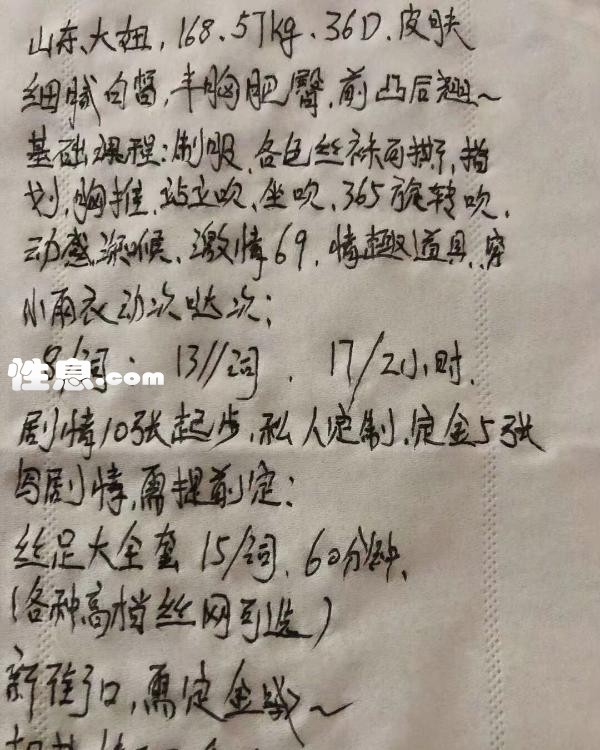 山东、大妞,168.57kg、36D.皮肤
细腻白皙,丰胸肥臀,前凸后翘~
基础课程:制服、各色丝袜可撕,指
划,胸推、站立吹、坐吹、365旋转吹、
动感深喉、激情69,情趣道具,穿
小雨衣动次哒次:
性息.com
9/词: 13//词、17/2小时.
剧情10张起步、私人定制、定金5张
写剧情,需提前定:
丝足大全套 15/词、60分钟、
(各种高档丝网可选)
新街口,需定金哦~